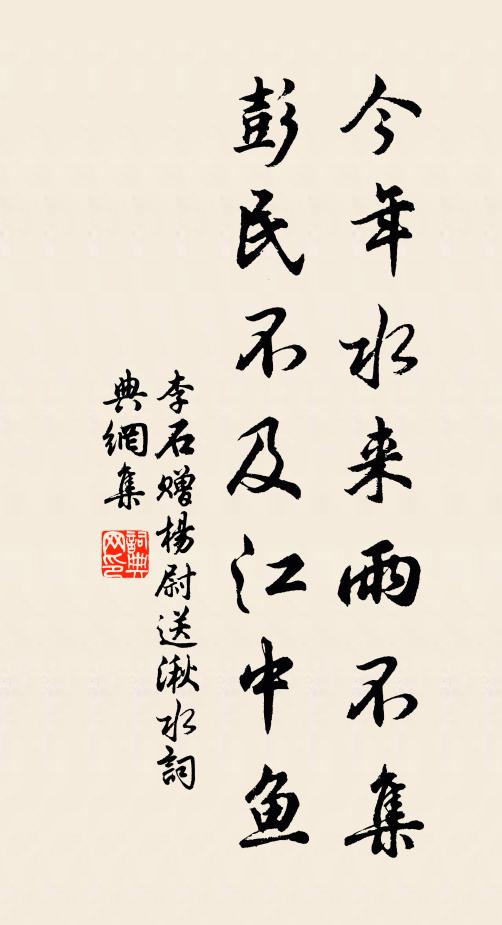 今年水来雨不集
彭民不及江中鱼
李石赠楊尉送湫水詞
典網集
詞典网印